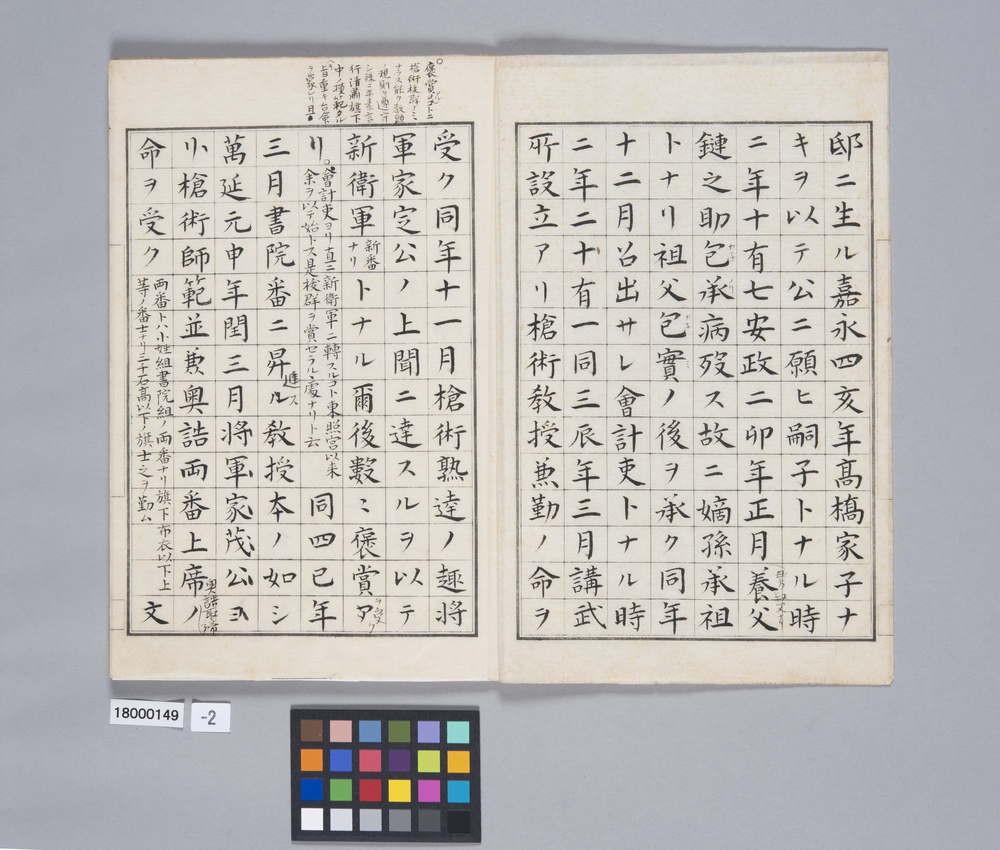 邸ニ生ル嘉永四亥年髙橋家子ナ
キヲ以テ公ニ願ヒ嗣子トナル時
ニ年十有七安政二卯年正月養父
鏈之助包承病歿ス故ニ嫡孫承祖
トナリ祖父包實ノ後ヲ承ク同年
十二月召出サレ會計吏トナル時
ニ年二十有一同三辰年三月講武
所設立アリ槍術敎授兼勤ノ命ヲ
褒賞ノコトニ
槍術抜群ノミ
ノ規則ヲ遵守
行清肅旗下
中ノ模範タル
受ク同年十一月槍術熟達ノ趣将
軍家定公ノ上聞ニ達スルヲ以テ
新衛軍新番ナリトナル爾後數〻褒賞ア
ヲ受ク
リ
會計吏ヨリ直ニ新衛軍ニ轉スルコト東照宮以来
余ヲ以テ始トス是抜群ヲ賞セラルヽ處ナリト云
同四巳年
三月書院番ニ昇ル敎授本ノ如シ
進ス
萬延元申年閏三月将軍家茂公ヨ
リ槍術師範並兼奥詰両番上席ノ
命ヲ受ク
両番トハ小姓組書院組ノ両番ナリ旗下布衣以下上
等ノ番士ナリ二千石髙以下ノ旗士之ヲ勤ム
文
18000149
-2